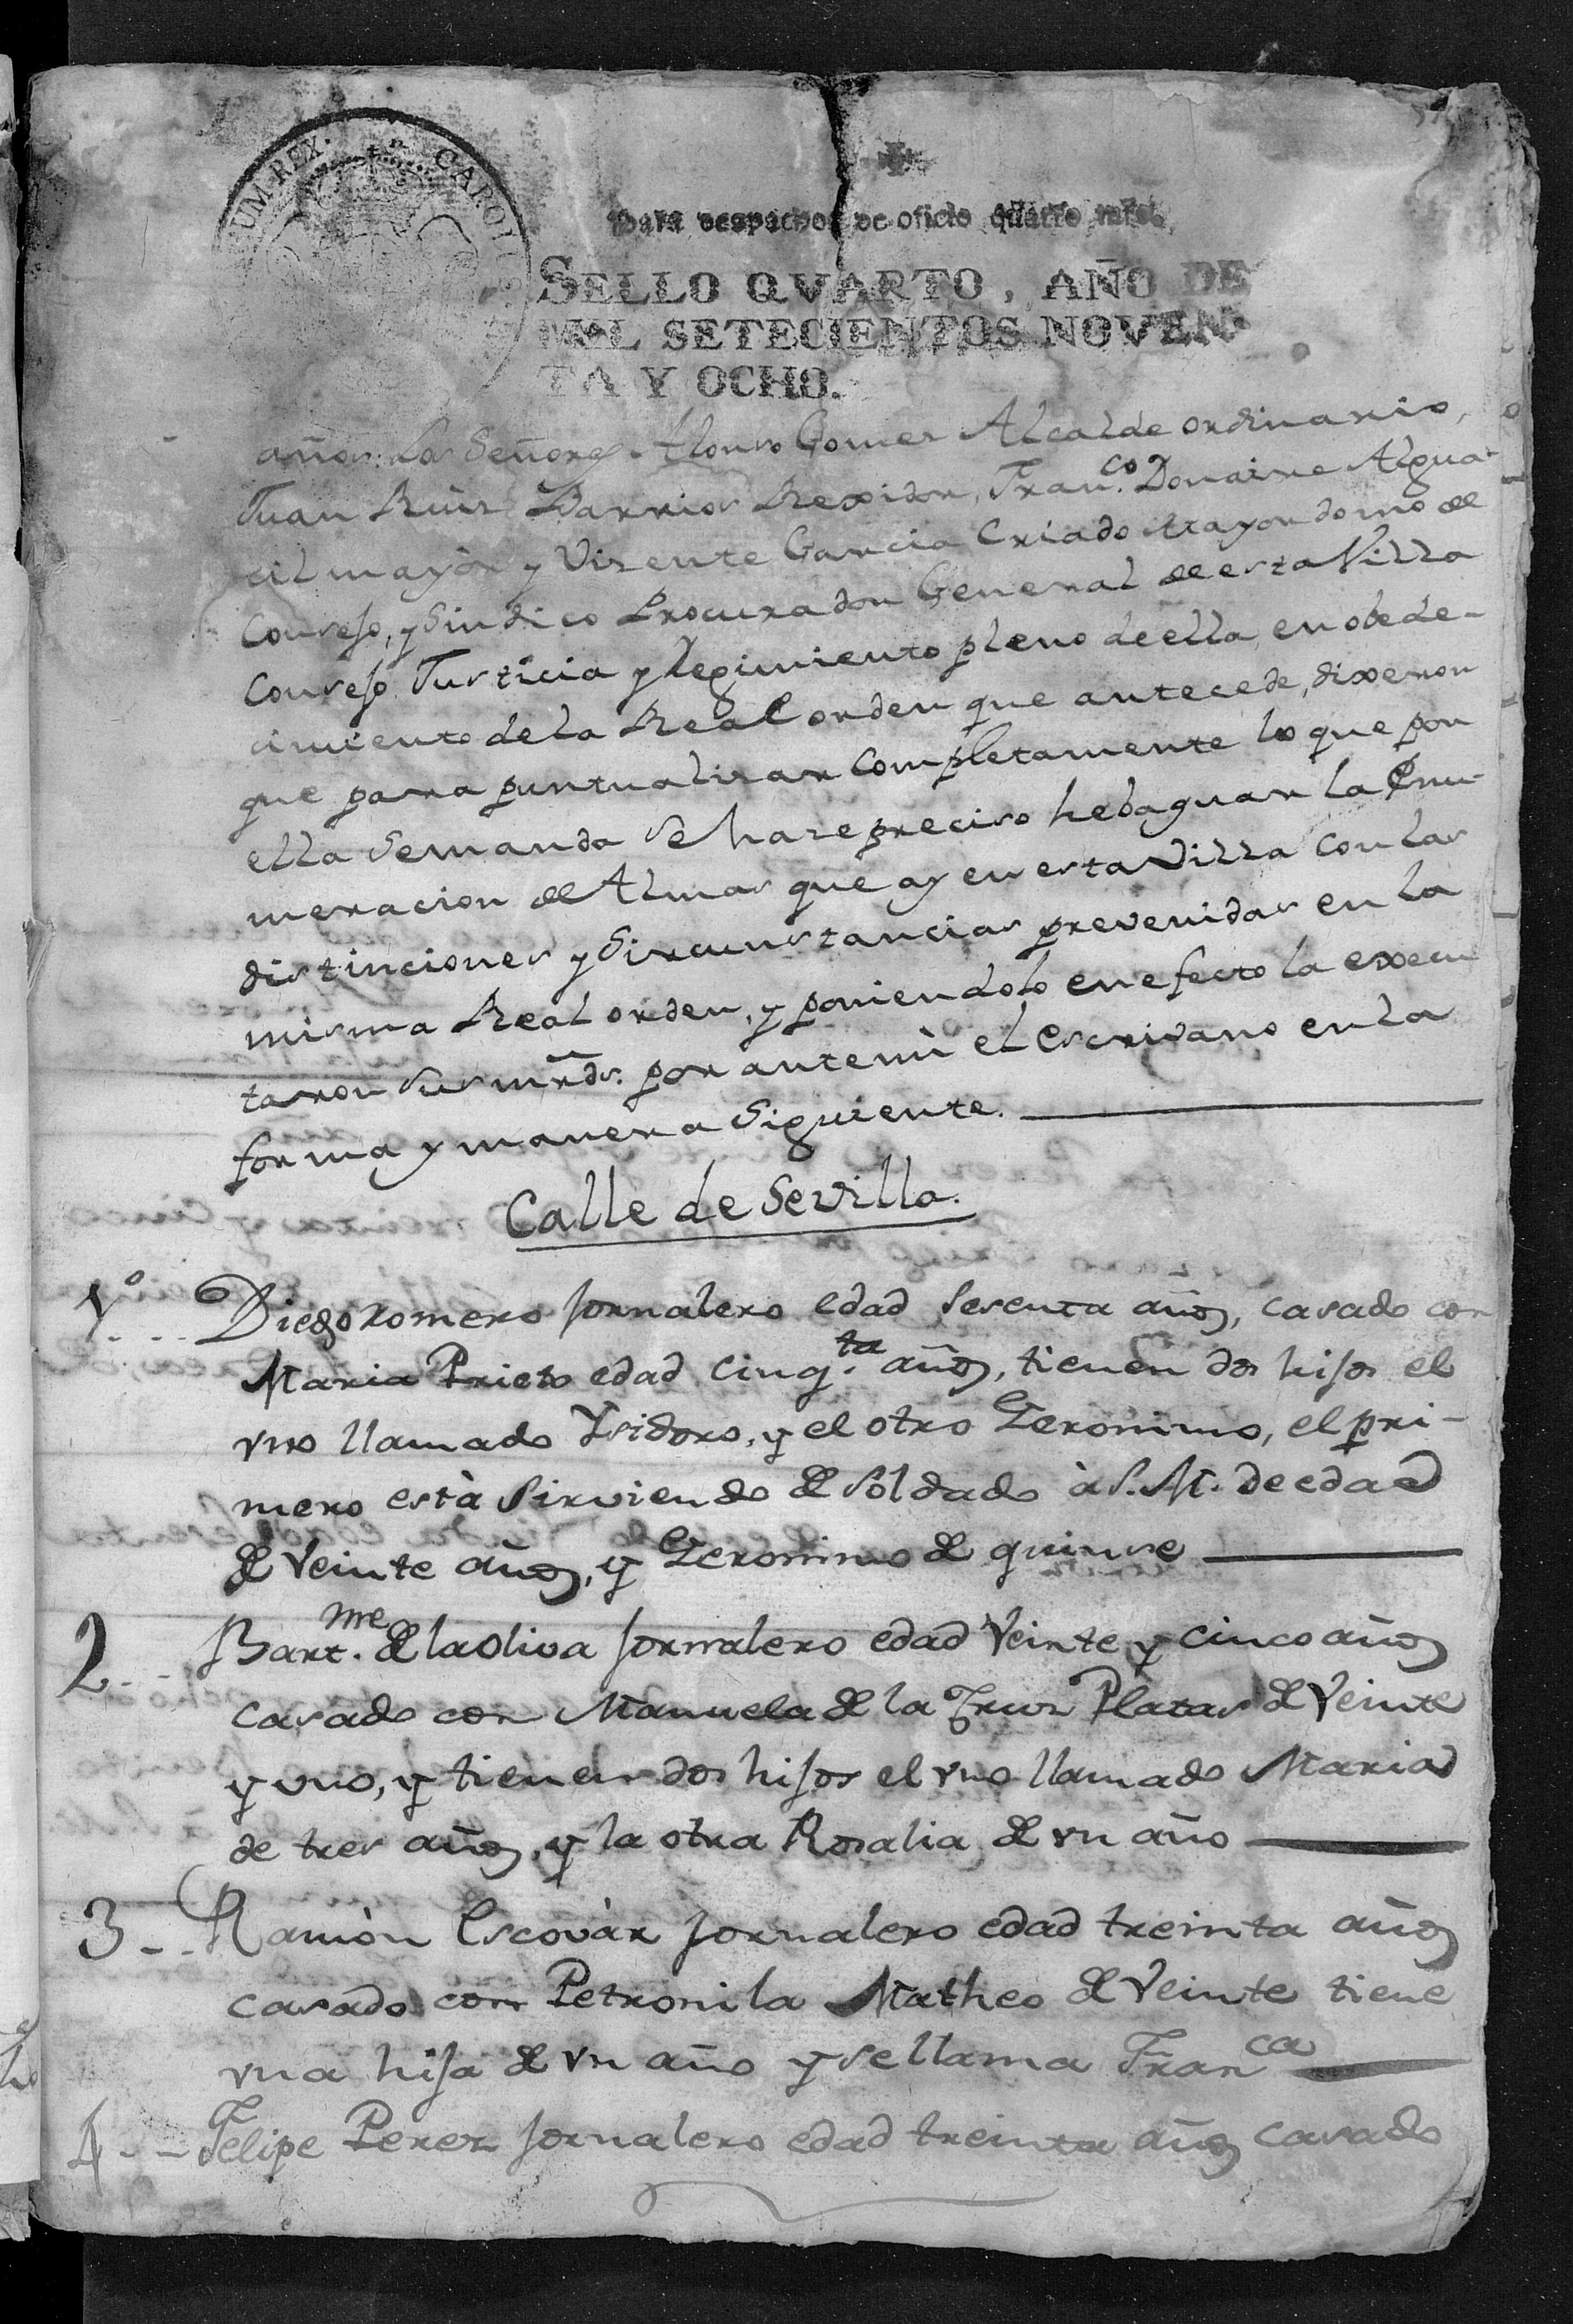 UM REX. CAROL
Para despachos de oficio quatro mrs.
SELLO QVARTO, AÑO DE
MIL SETECIENTOS NOVEN-
TA Y OCHO.
años: Los Señores Alonso Gomez Alcalde ordinario,
Juan Ruiz Barrios Rexidor, Fran.co Donaire Algua-
cil mayòr y Visente Garcia Criado Mayordomo de
Consejo, y Sindico Procurador General de esta Villa
Consejo Justicia y Regimiento pleno de ella, en obede-
cimiento de la Real orden que antecede, dixeron
que para puntualizar completamente lo que por
ella se manda se haze preciso hebaguar la Enu-
meracion de Almas que ay en esta Villa con las
distinciones y Sircunstancias prevenidas en la
misma Real orden, y poniendolo en efecto la execu
taron sus mrds. por ante mi el escrivano en la
forma y manera Siguiente.
Calle de Sevilla.
1.º Diego Romero Jornalero edad Sesenta años, casado con
Maria Prieto edad cinq.ta años, tienen dos hijos el
vno llamado Ysidoro, y el otro Geronimo, el pri-
mero està Sirviendo de Soldado à S. M. de edad
de Veinte años, y Geronimo de quinse
2 Bart.me de la Oliva Jornalero edad Veinte y cinco años
casado con Manuela de la Cruz Platas de Veinte
y uno, y tienen dos hijos el vno llamado Maria
de tres años, y la otra Rosalia de vn año
3 Ramòn Escovàr Jornalero edad treinta años
casado con Petronila Matheo de Veinte tiene
vna hija de vn año y se llama Franca
4 Felipe Perez Jornalero edad treinta años casado